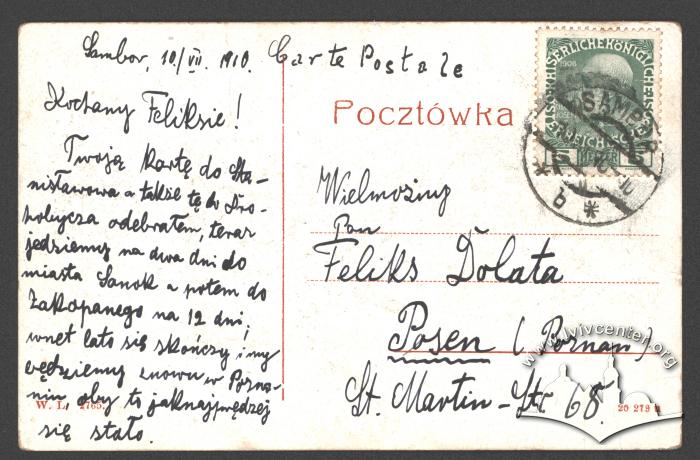 Sambor, 10/VII. 1910. Carte Postale
Pocztówka
Kochany Feliksie!
Twoją kartę do Sta-
nisławowa a także tę do Dro-
hobycza odebrałem, teraz
jedziemy na dwa dni do
miasta Sanok a potem do
Zakopanego na 12 dni,
wnet lato się skończy i my
będziemy znowu w Pozna-
niu oby to jaknajprędzej
się stało.
W. L. 2765.
Wielmożny
Pan
Feliks Dolata
Posen (Poznań)
St. Martin-Str 68.
20 279
SAMBOR
b
1908
5 HELLER 5
www.lvivcenter.org